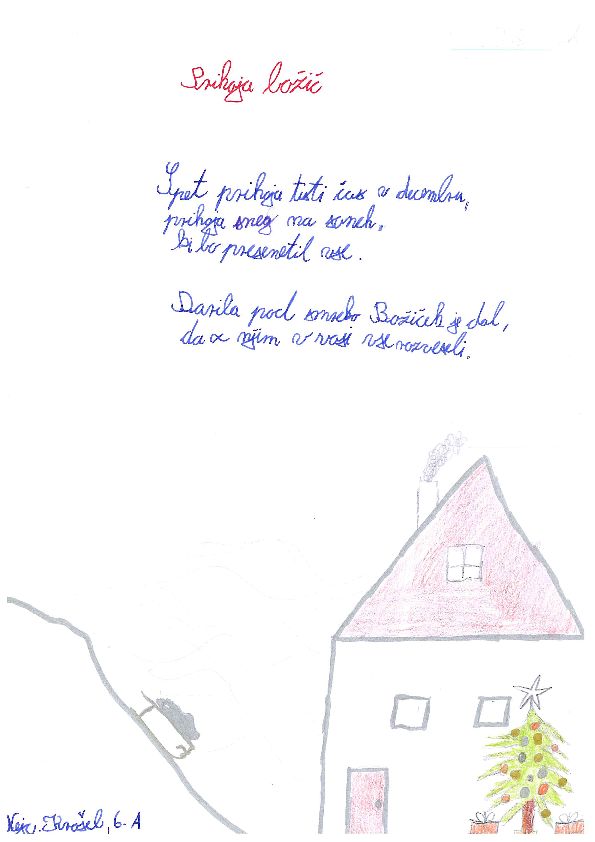 Prihaja božič
Spet prihaja tisti čas v decembru,
prihaja sneg na saneh,
bi bo presenetil vse.
Darila pod smreko Božiček je dal,
da z njim v vasi vse razveseli.
Krošel, 6. A